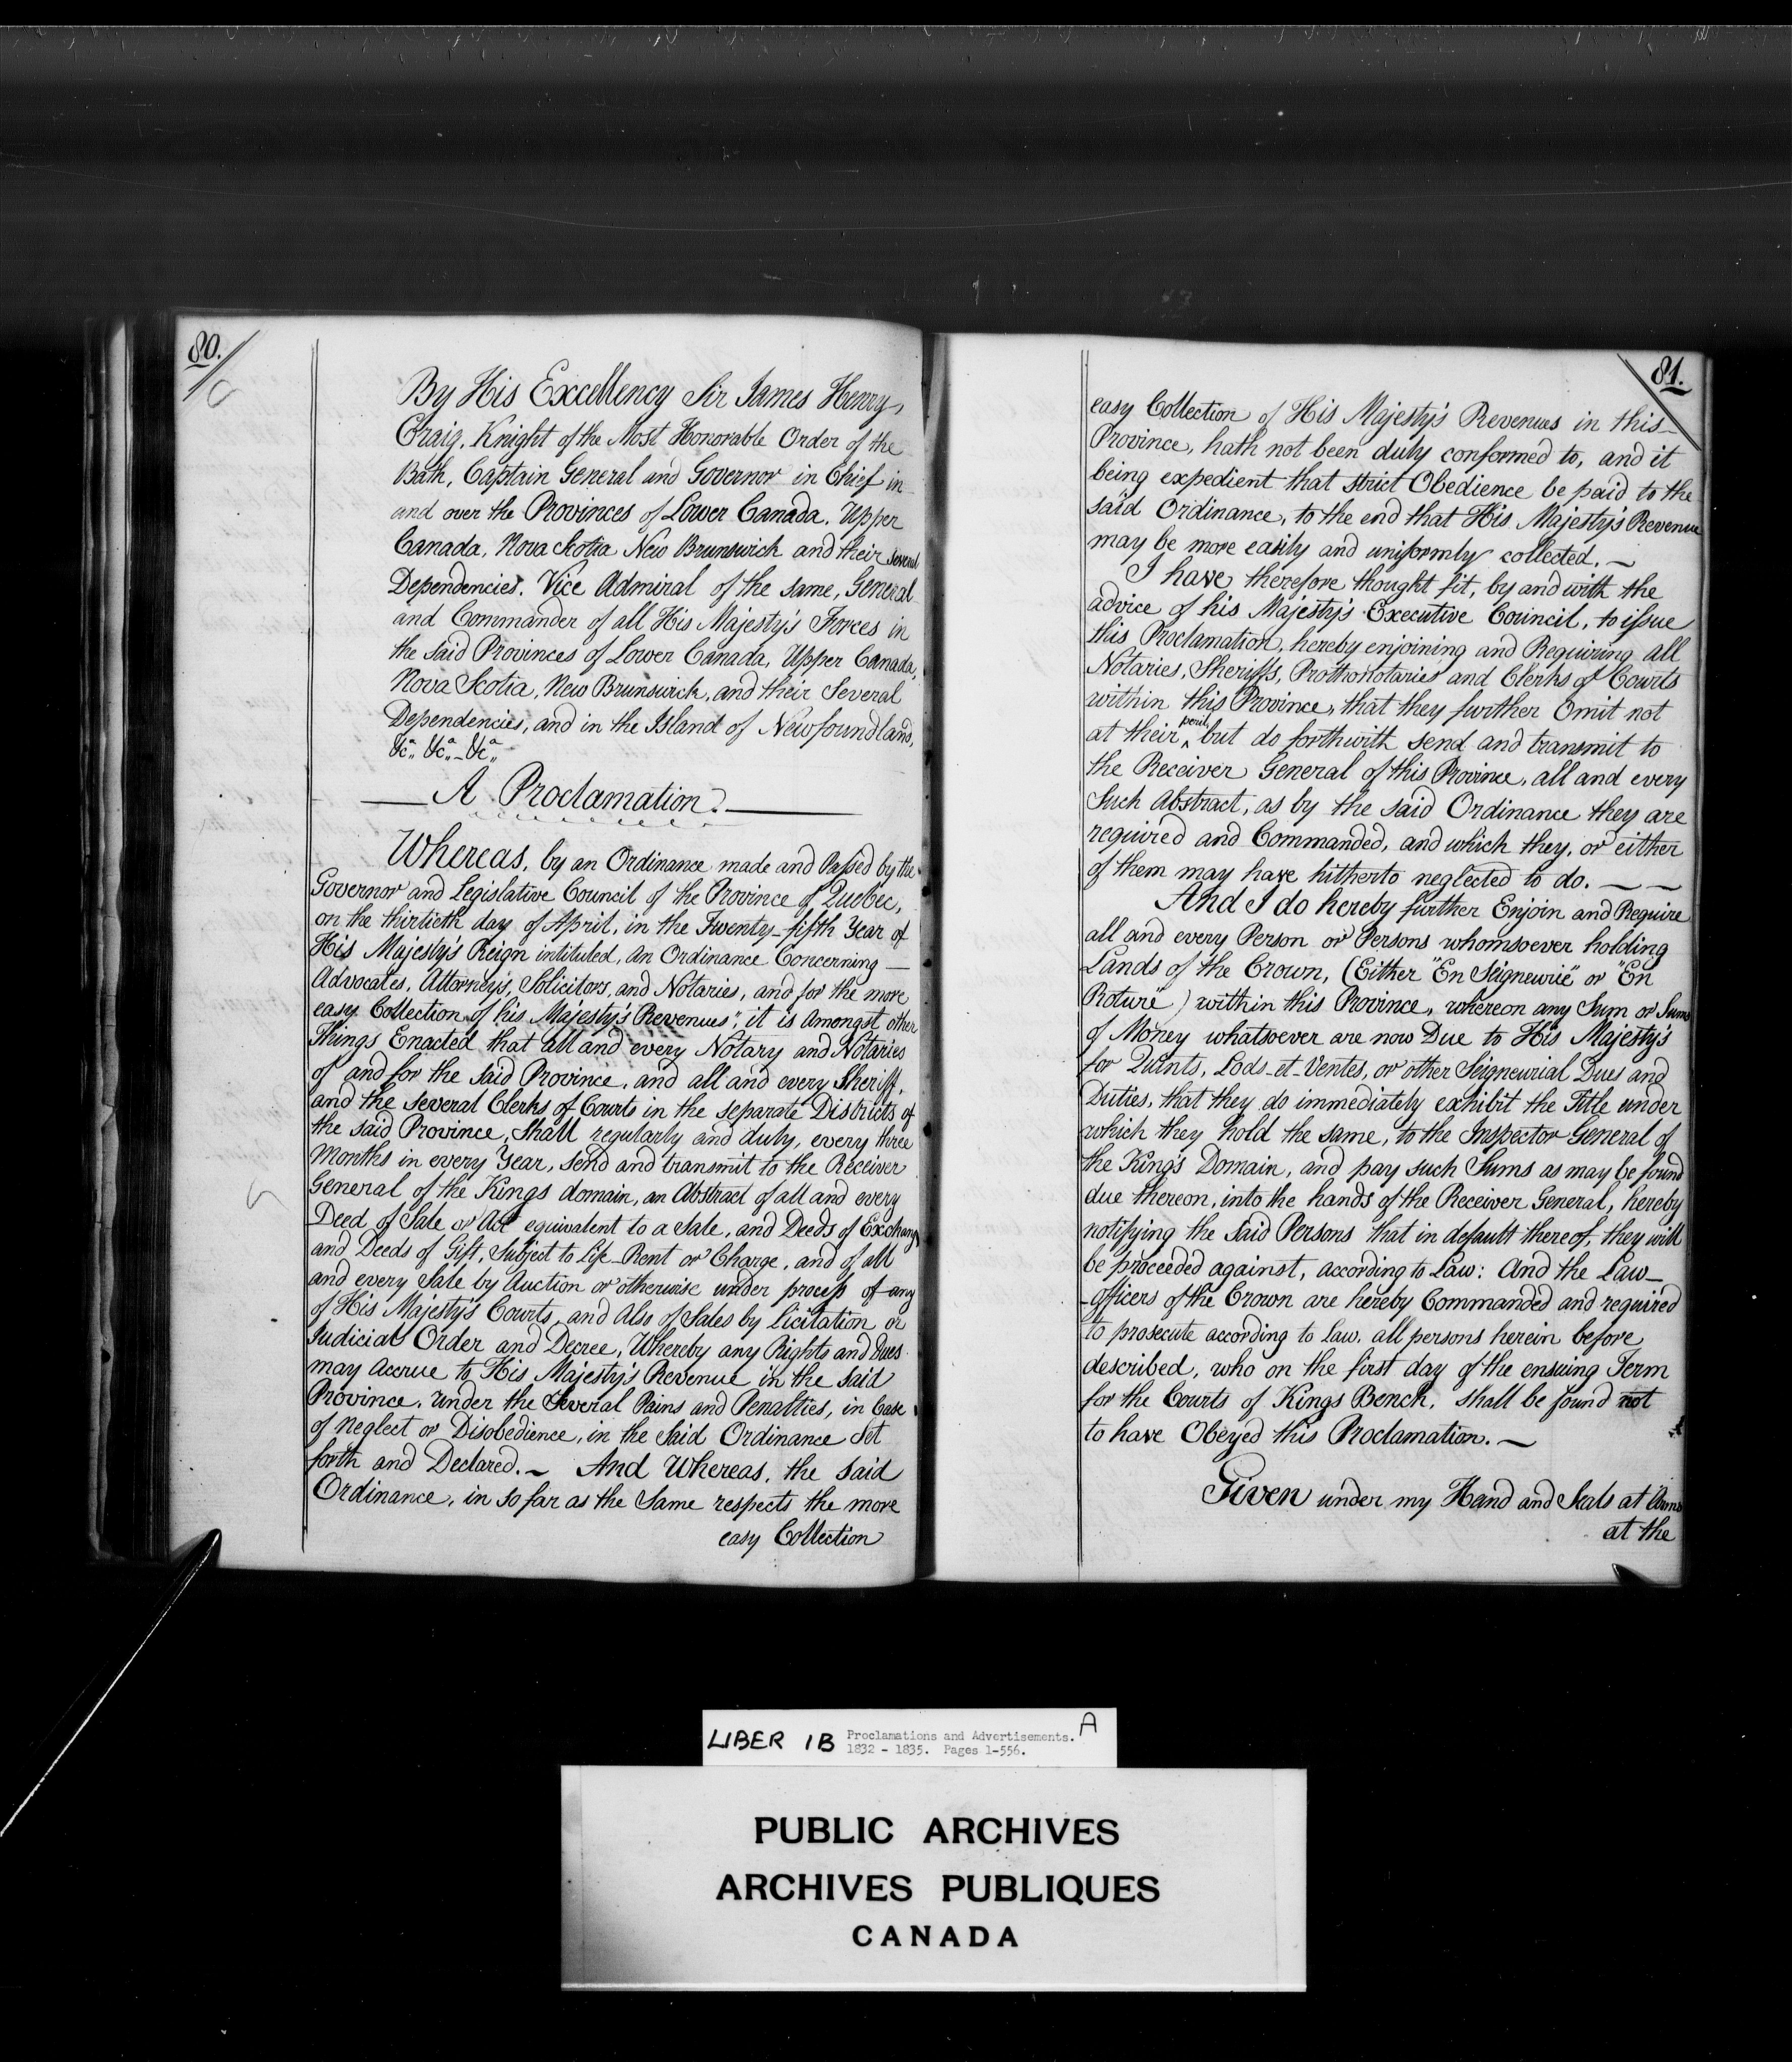 80.
By His Excellency Sir James Henry,
Craig, Knight of the Most Honorable Order of the
Bath, Captain General and Governor in Chief in
and over the Provinces of Lower Canada, Upper
Canada, Nova Scotia New Brunswick and their several
Dependencies. Vice Admiral of the same, General
and Commander of all His Majesty's Forces in
the said Provinces of Lower Canada, Upper Canada,
Nova Scotia, New Brunswick, and their Several
Dependencies, and in the Island of Newfoundland,
&ca. &ca. &ca.
A Proclamation.
Whereas, by an Ordinance made and Passed by the
Governor and Legislative Council of the Province of Quebec,
on the thirtieth day of April, in the Twenty-fifth Year of
His Majesty's Reign intituled, An Ordinance Concerning
Advocates, Attorney's, Solicitors, and Notaries, and for the more
easy Collection of his Majesty's Revenues", it is Amongst other
Things Enacted that all and every Notary and Notaries
of and for the Said Province, and all and every Sheriff,
and the several Clerks of Courts in the separate Districts of
the said Province, Shall regularly and duly, every three
Months in every Year, send and transmit to the Receiver
General of the Kings domain, an Abstract of all and every
Deed of Sale or Act equivalent to a Sale, and Deeds of Exchange
and Deeds of Gift, Subject to Life-Rent or Charge, and of all
and every Sale by Auction or otherwise under process of any
of His Majesty's Courts, and Also of Sales by licitation or
Judicial Order and Decree, Whereby any Rights and Dues
may Accrue to His Majesty's Revenue in the said
Province, under the Several Pains and Penalties, in Case
of neglect or Disobedience, in the Said Ordinance Set
forth and Declared. ~ And Whereas, the said
Ordinance, in so far as the Same respects the more
easy Collection
81.
easy Collection of His Majesty's Revenues in this
Province, hath not been duly conformed to, and it
being expedient that strict Obedience be paid to the
said Ordinance, to the end that His Majesty's Revenue
may be more easily and uniformly collected. ~
I have therefore thought fit, by and with the
advice of his Majesty's Executive Council, to issue
this Proclamation, hereby enjoining and Requiring all
Notaries, Sheriffs, Prothonotaries and Clerks of Courts
within this Province, that they further Omit not
at their peril, but do forthwith send and transmit to
the Receiver General of this Province, all and every
Such Abstract, as by the said Ordinance they are
required and Commanded, and which they, or either
of them may have hitherto neglected to do. ~ ~
And I do hereby further Enjoin and Require
all and every Person or Persons whomsoever holding
Lands of the Crown, (Either "En Seigneurie" or "En
Roture") within this Province, whereon any Sum or Sums
of Money whatsoever are now Due to His Majesty's
for Quints, Lods-et-Ventes, or other Seigneurial Dues and
Duties, that they do immediately exhibit the Title under
which they hold the same, to the Inspector General of
the King's Domain, and pay such Sums as may be found
due thereon, into the hands of the Receiver General, hereby
notifying the Said Persons that in default thereof, they will
be proceeded against, according to Law: And the Law-
-officers of the Crown are hereby Commanded and required
to prosecute according to law, all persons herein before
described, who on the first day of the ensuing Term
for the Courts of Kings Bench, Shall be found not
to have Obeyed this Proclamation. ~
Given under my Hand and Seals at Arms
at the
LIBER 1B Proclamations and Advertisements. A
1832 - 1835. Pages 1-556.
PUBLIC ARCHIVES
ARCHIVES PUBLIQUES
CANADA